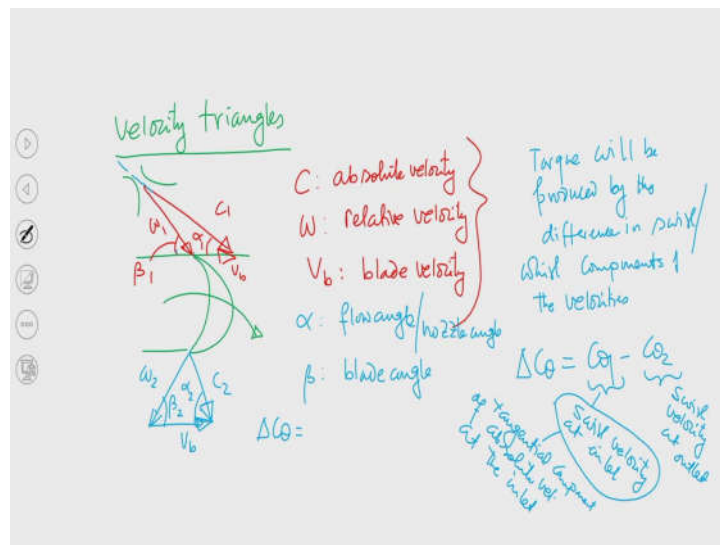 Velocity triangles
C: absolute velocity
ω: relative velocity
V_b: blade velocity
α: flow angle/nozzle angle
β: blade angle
ω_1
C_1
α_1
β_1
V_b
ω_2
β_2
α_2
C_2
V_b
ΔC_θ =
Torque will be
produced by the
difference in swirl/
whirl components of
the velocities
ΔC_θ = C_θ1 - C_θ2
Swirl velocity
at inlet
Swirl
velocity
at outlet
tangential component
of absolute vel.
at the inlet